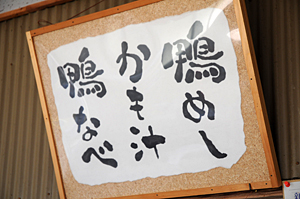 鴨めし
かも汁
鴨なべ